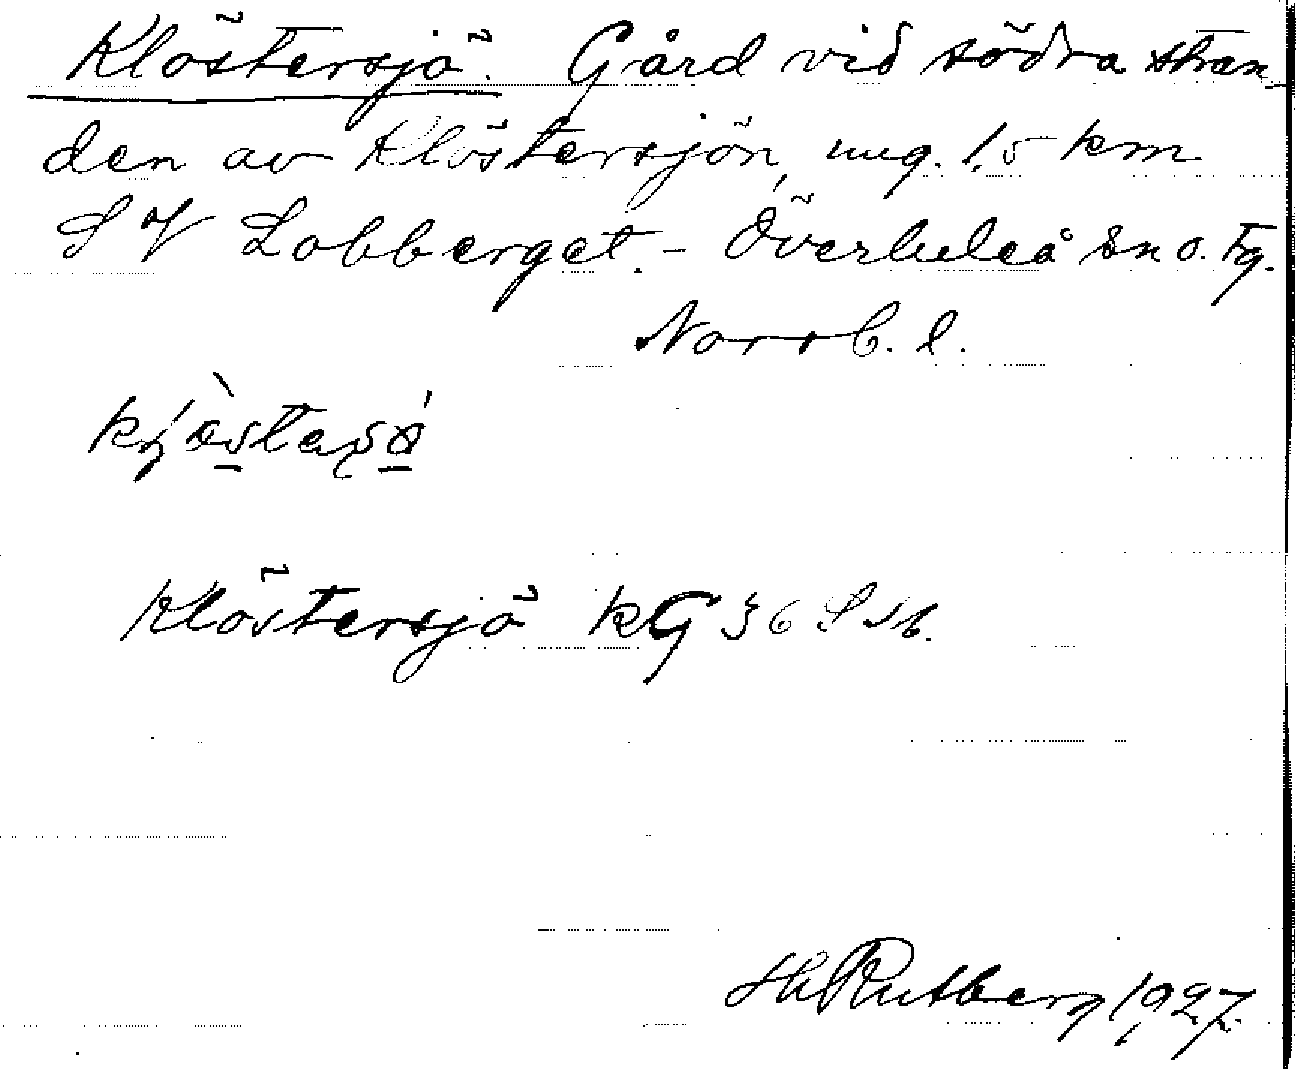 Klöstersjö. Gård vid södra stran
den av Klöstersjön, ung. 1,5 km
SV Lobberget. - Överluleå sn o. tg.
Norrb. l.
Klöstersjö kG 36 S
H Rutberg 1927.